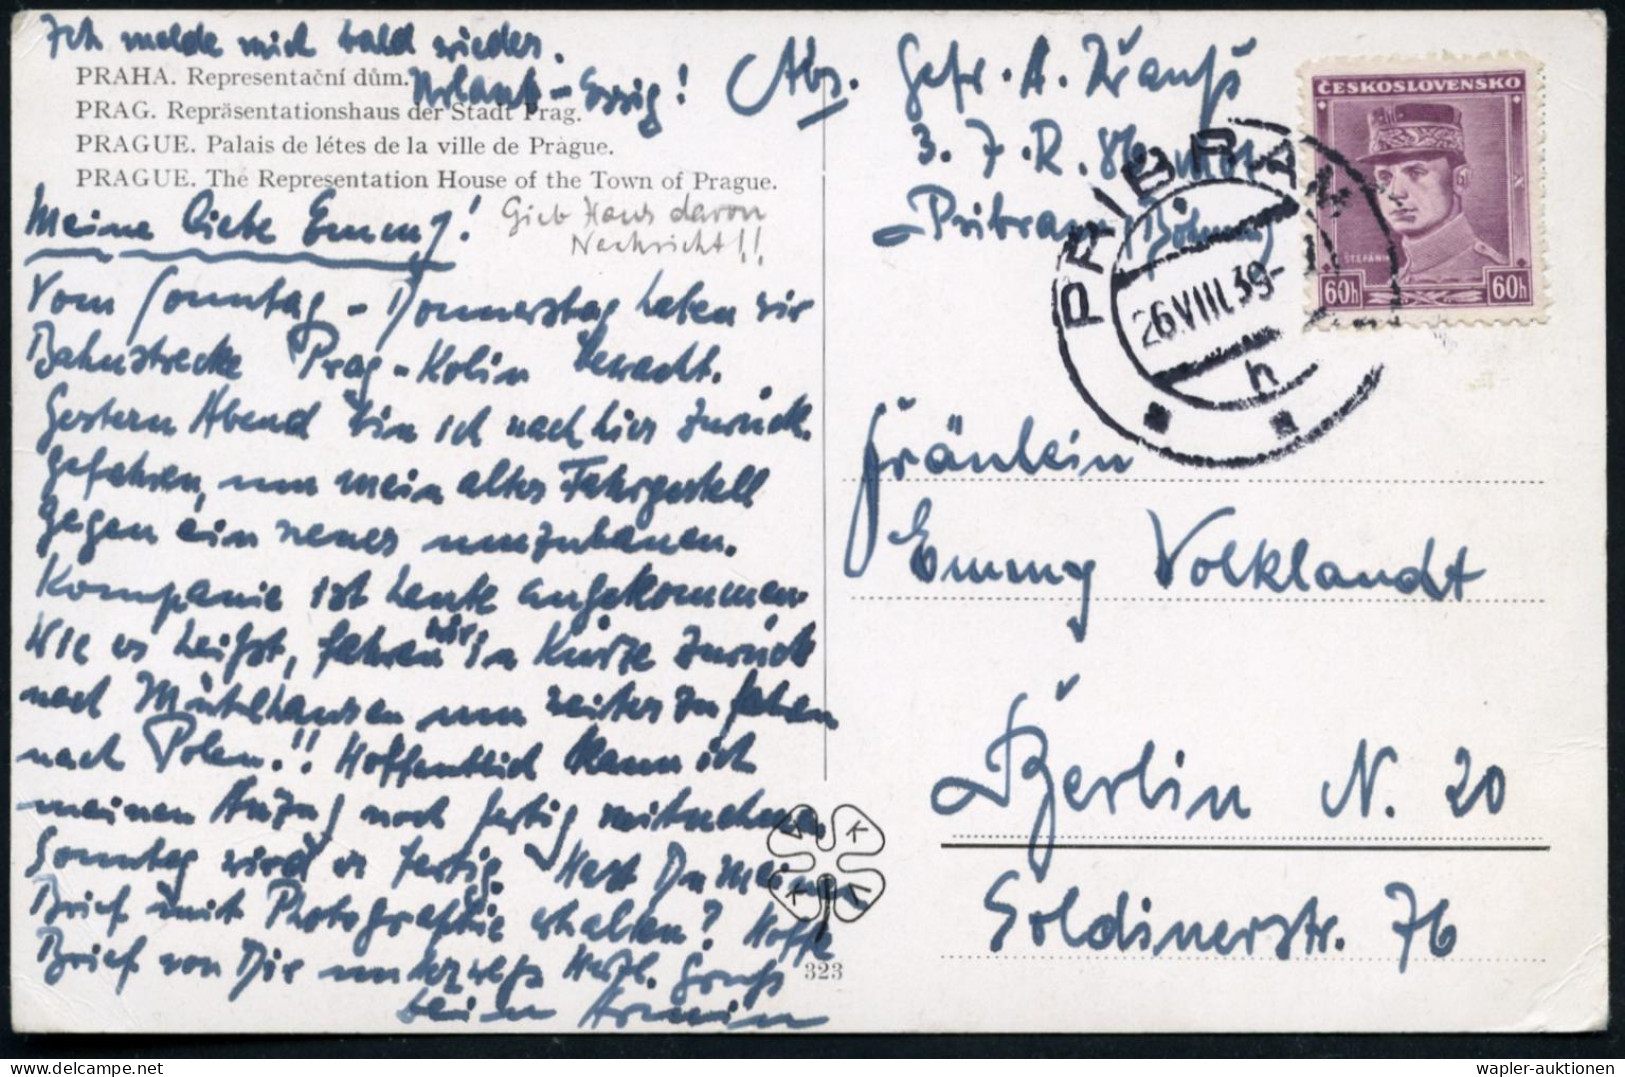 Ich melde mich bald wieder.
PRAHA. Representační dům.
Urlaub - Essig!
PRAG. Repräsentationshaus der Stadt Prag.
PRAGUE. Palais de létes de la ville de Prague.
PRAGUE. The Representation House of the Town of Prague.
Gieb Hans davon
Nachricht!!
Meine liebe Emmy!
Vom Sonntag - Donnerstag haben wir
Bahnstrecke Prag - Kolin bewacht.
Gestern Abend bin ich nach hier zurück.
gefahren, um mein altes Fahrgestell
gegen ein neues umzubauen.
Kompanie ist heute angekommen.
Wie es heißt, fahren wir in Kürze zurück
nach Mühlhausen um weiter zu fahren
nach Polen!! Hoffentlich kann ich
meinen Anzug noch fertig mitnehmen
Sonntag wird er fertig. Hast Du meinen
Brief mit Photographie erhalten? Hoffe
Brief von Dir unterwegs Herzl. Gruß
Dein Armin
323
K
K
V
V
Abs. Gefr. A. Krauß
3. J. R. 86
Pribram, Böhmen
ČESKOSLOVENSKO
ŠTEFÁNIK
60h 60h
PŘÍBRAM
26.VIII.39-
h
Fräulein
Emmy Volklandt
Berlin N. 20
Soldinerstr. 76
wapler-auktionen